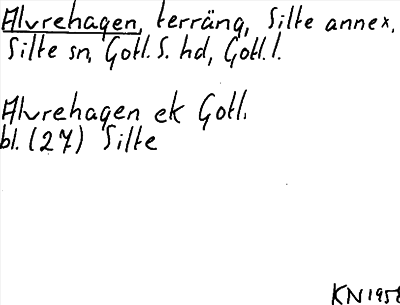 Alvrehagen, terräng, Silte annex,
Silte sn, Gotl. S. hd, Gotl. l.
Alvrehagen ek Gotl.
bl. (27) Silte